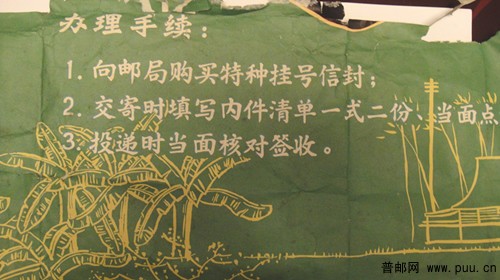 办理手续：
1.向邮局购买特种挂号信封；
2.交寄时填写内件清单一式二份、当面点
3.投递时当面核对签收。
普邮网 www.puu.cn